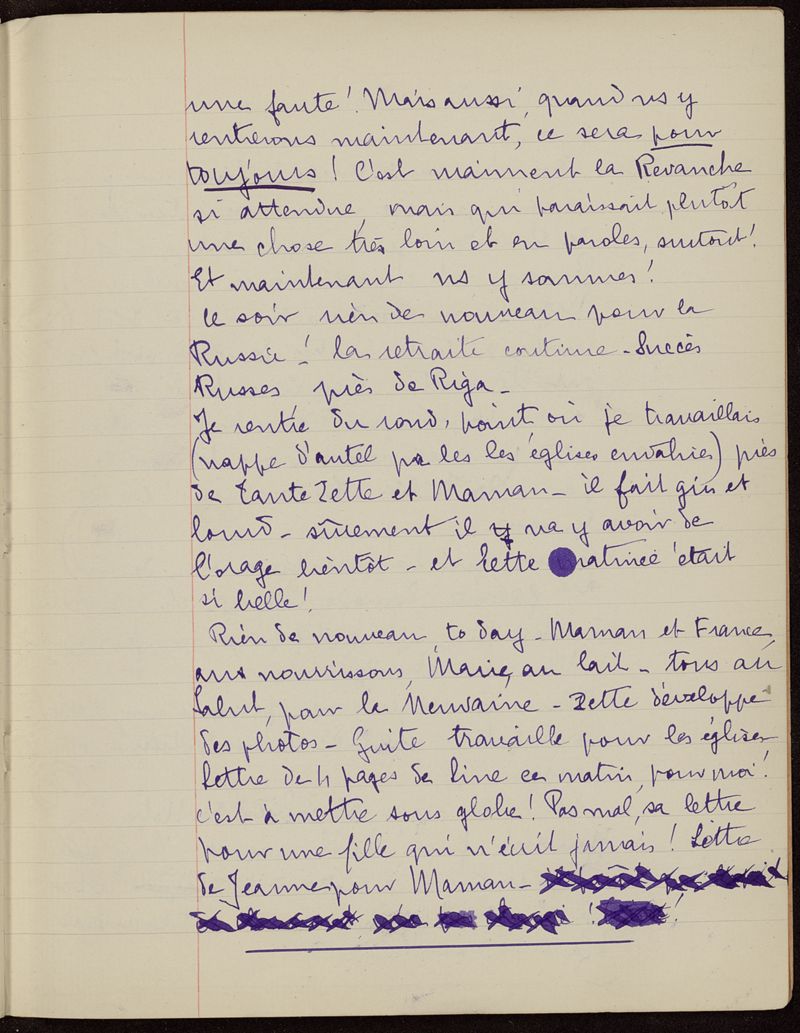 une faute! Mais aussi, quand ns y
rentrerons maintenant, ce sera pour
toujours! C'est maiment la Revanche
si attendue, mais qui paraissait plutôt
une chose très loin et en paroles, surtout!
Et maintenant ns y sommes!
Ce soir rien de nouveau pour la
Russie! la retraite continue - Succès
Russes près de Riga -
Je rentre du rond, point où je travaillais
(nappe d'autel pr les les églises envahies) près
de Tante Zette et Maman - il fait gris et
lourd - sûrement il y va y avoir de
l'orage bientôt - et cette matinée était
si belle!
Rien de nouveau, to day - Maman et France,
aux nourrissons, Marie, au lait - tous au
Salut, pour la Neuvaine - Zette développe
des photos - Guite travaille pour les églises
Lettre de 4 pages de Line ce matin, pour moi!
c'est à mettre sous globe! Pas mal, sa lettre
pour une fille qui n'écrit jamais! Lettre
de Jeanne pour Maman -